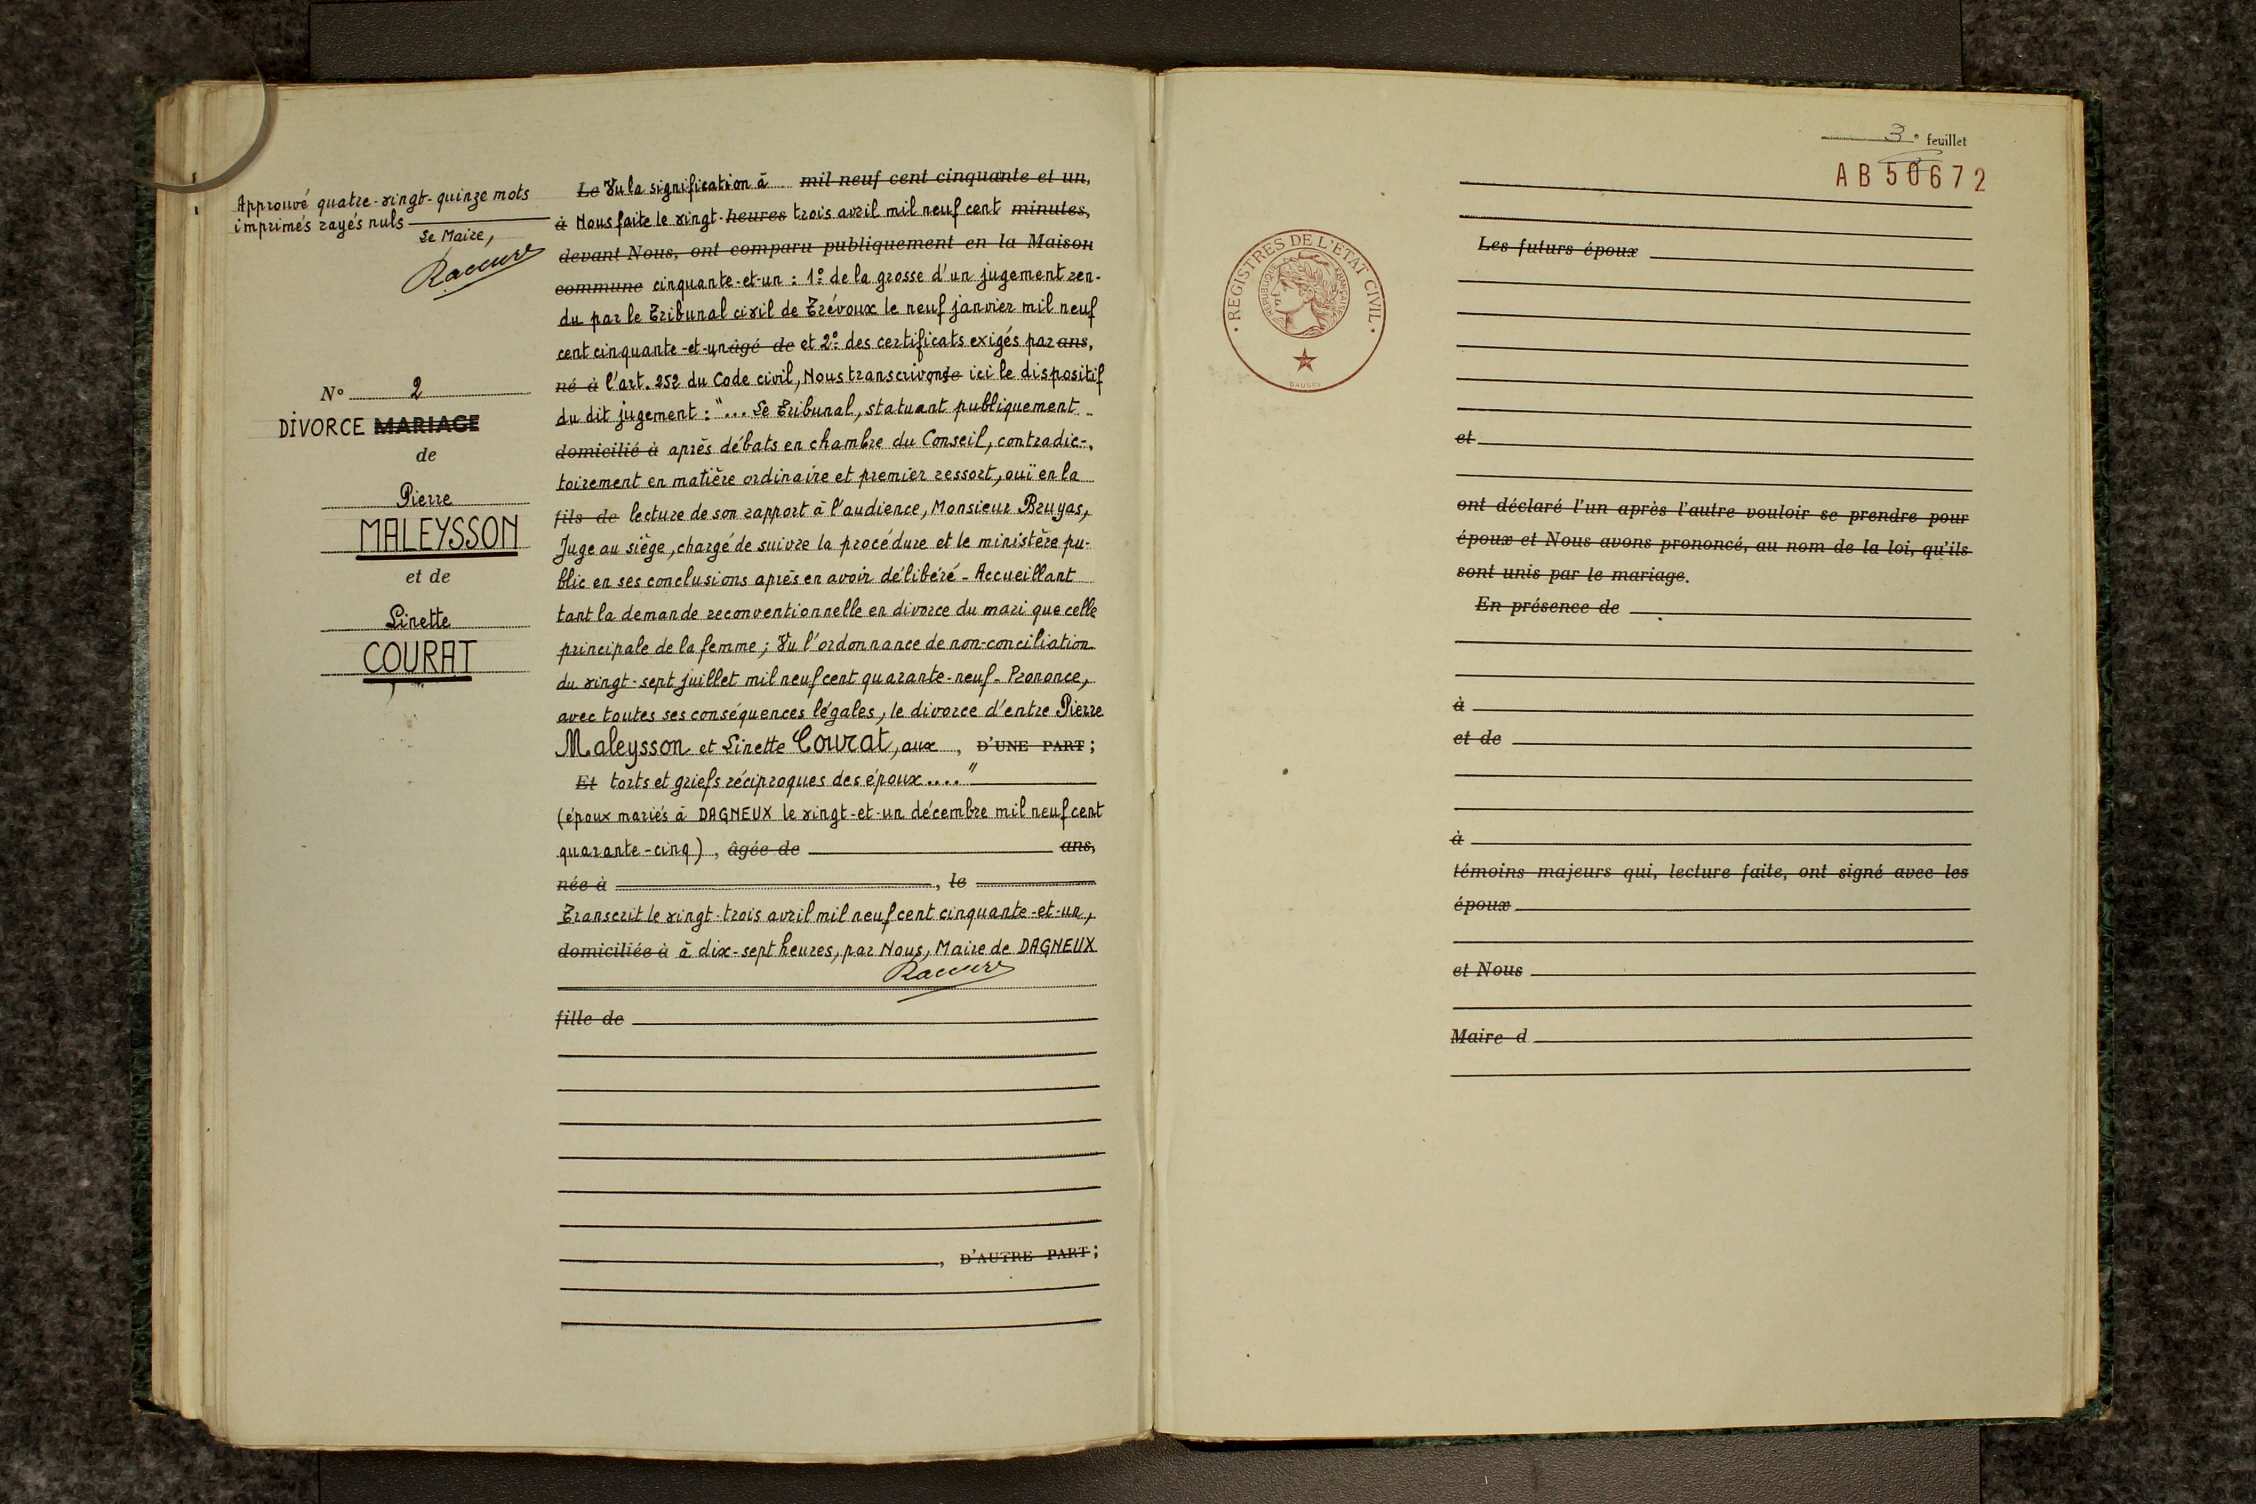 Approuvé quatre-vingt-quinze mots
imprimés rayés nuls
Le Maire,
N° 2
DIVORCE MARIAGE
de
Pierre
MALEYSSON
et de
Linette
COURAT
Le Vu la signification à mil neuf cent cinquante et un,
à Nous faite le vingt-heures trois avril mil neuf cent minutes,
devant Nous, ont comparu publiquement en la Maison
commune cinquante-et-un : 1° de la grosse d'un jugement ren-
du par le Tribunal civil de Trévoux le neuf janvier mil neuf
cent cinquante-et-un âgé de et 2° des certificats exigés par ans,
né à l'art. 252 du Code civil, Nous transcrivons le ici le dispositif
du dit jugement : "... Le Tribunal, statuant publiquement
domicilié à après débats en chambre du Conseil, contradic-,
toirement en matière ordinaire et premier ressort, ouï en la
fils de lecture de son rapport à l'audience, Monsieur Bruyas,
Juge au siège, chargé de suivre la procédure et le ministère pu-
blic en ses conclusions après en avoir délibéré - Accueillant
tant la demande reconventionnelle en divorce du mari que celle
principale de la femme ; Vu l'ordonnance de non-conciliation
du vingt-sept juillet mil neuf cent quarante-neuf - Prononce,
avec toutes ses conséquences légales, le divorce d'entre Pierre
Maleysson et Linette Courat, aux , D'UNE PART ;
Et torts et griefs réciproques des époux...."
(époux mariés à DAGNEUX le vingt-et-un décembre mil neuf cent
quarante-cinq) , âgée de ans,
née à , le
Transcrit le vingt-trois avril mil neuf cent cinquante-et-un,
domiciliée à à dix-sept heures, par Nous, Maire de DAGNEUX
fille de
, D'AUTRE PART ;
3e feuillet
AB50672
REGISTRES DE L'ETAT CIVIL
REPUBLIQUE FRANÇAISE
Les futurs époux
et
ont déclaré l'un après l'autre vouloir se prendre pour
époux et Nous avons prononcé, au nom de la loi, qu'ils
sont unis par le mariage.
En présence de
à
et de
à
témoins majeurs qui, lecture faite, ont signé avec les
époux
et Nous
Maire d